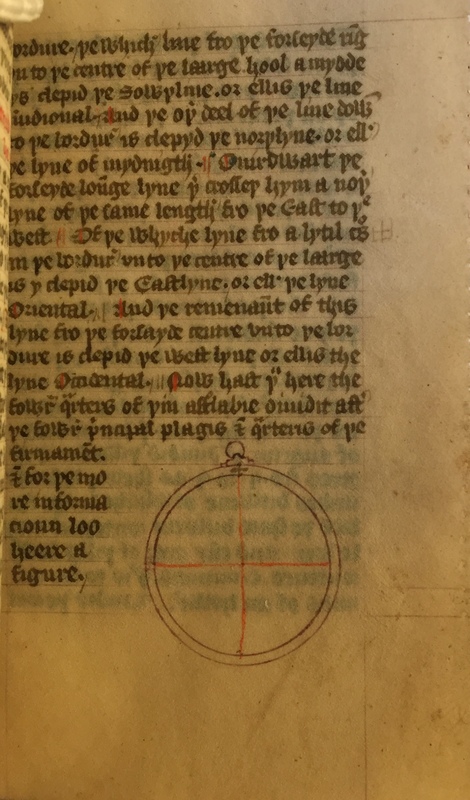 ordure. þe which lyne fro þe forseyde rīg
vn to þe centre of þe large hool amydde
ys clepid þe Sowþlyne. or ellis þe lyne
And þe oþ deel of þe lyne dow̄
to þe bordur is clepyd þe norþlyne. or ell'
þe lyne of mydnigth. Ouirdwart þe
forseyde longe lyne þ crosseþ hym a noþ
lyne of þe same length fro þe East to þe
West. Of þe Whyche lyne fro a lytil cros
in þe bordur vn to þe centre of þe large
is y clepid þe Eastlyne. or ell' þe lyne
Oriental. And þe remenaūt of this
lyne fro þe forsayde centre vn to þe bor
dure is clepid þe west lyne or ellis the
lyne Occidental. Now hast þu here the
fowr q̄rters of þin astlabie diuidit aft'
þe fowr p̄ncipal plagis & q̄rteris of þe
firmamēt.
& for þe mo
re informa
cioun loo
heere a
figure.